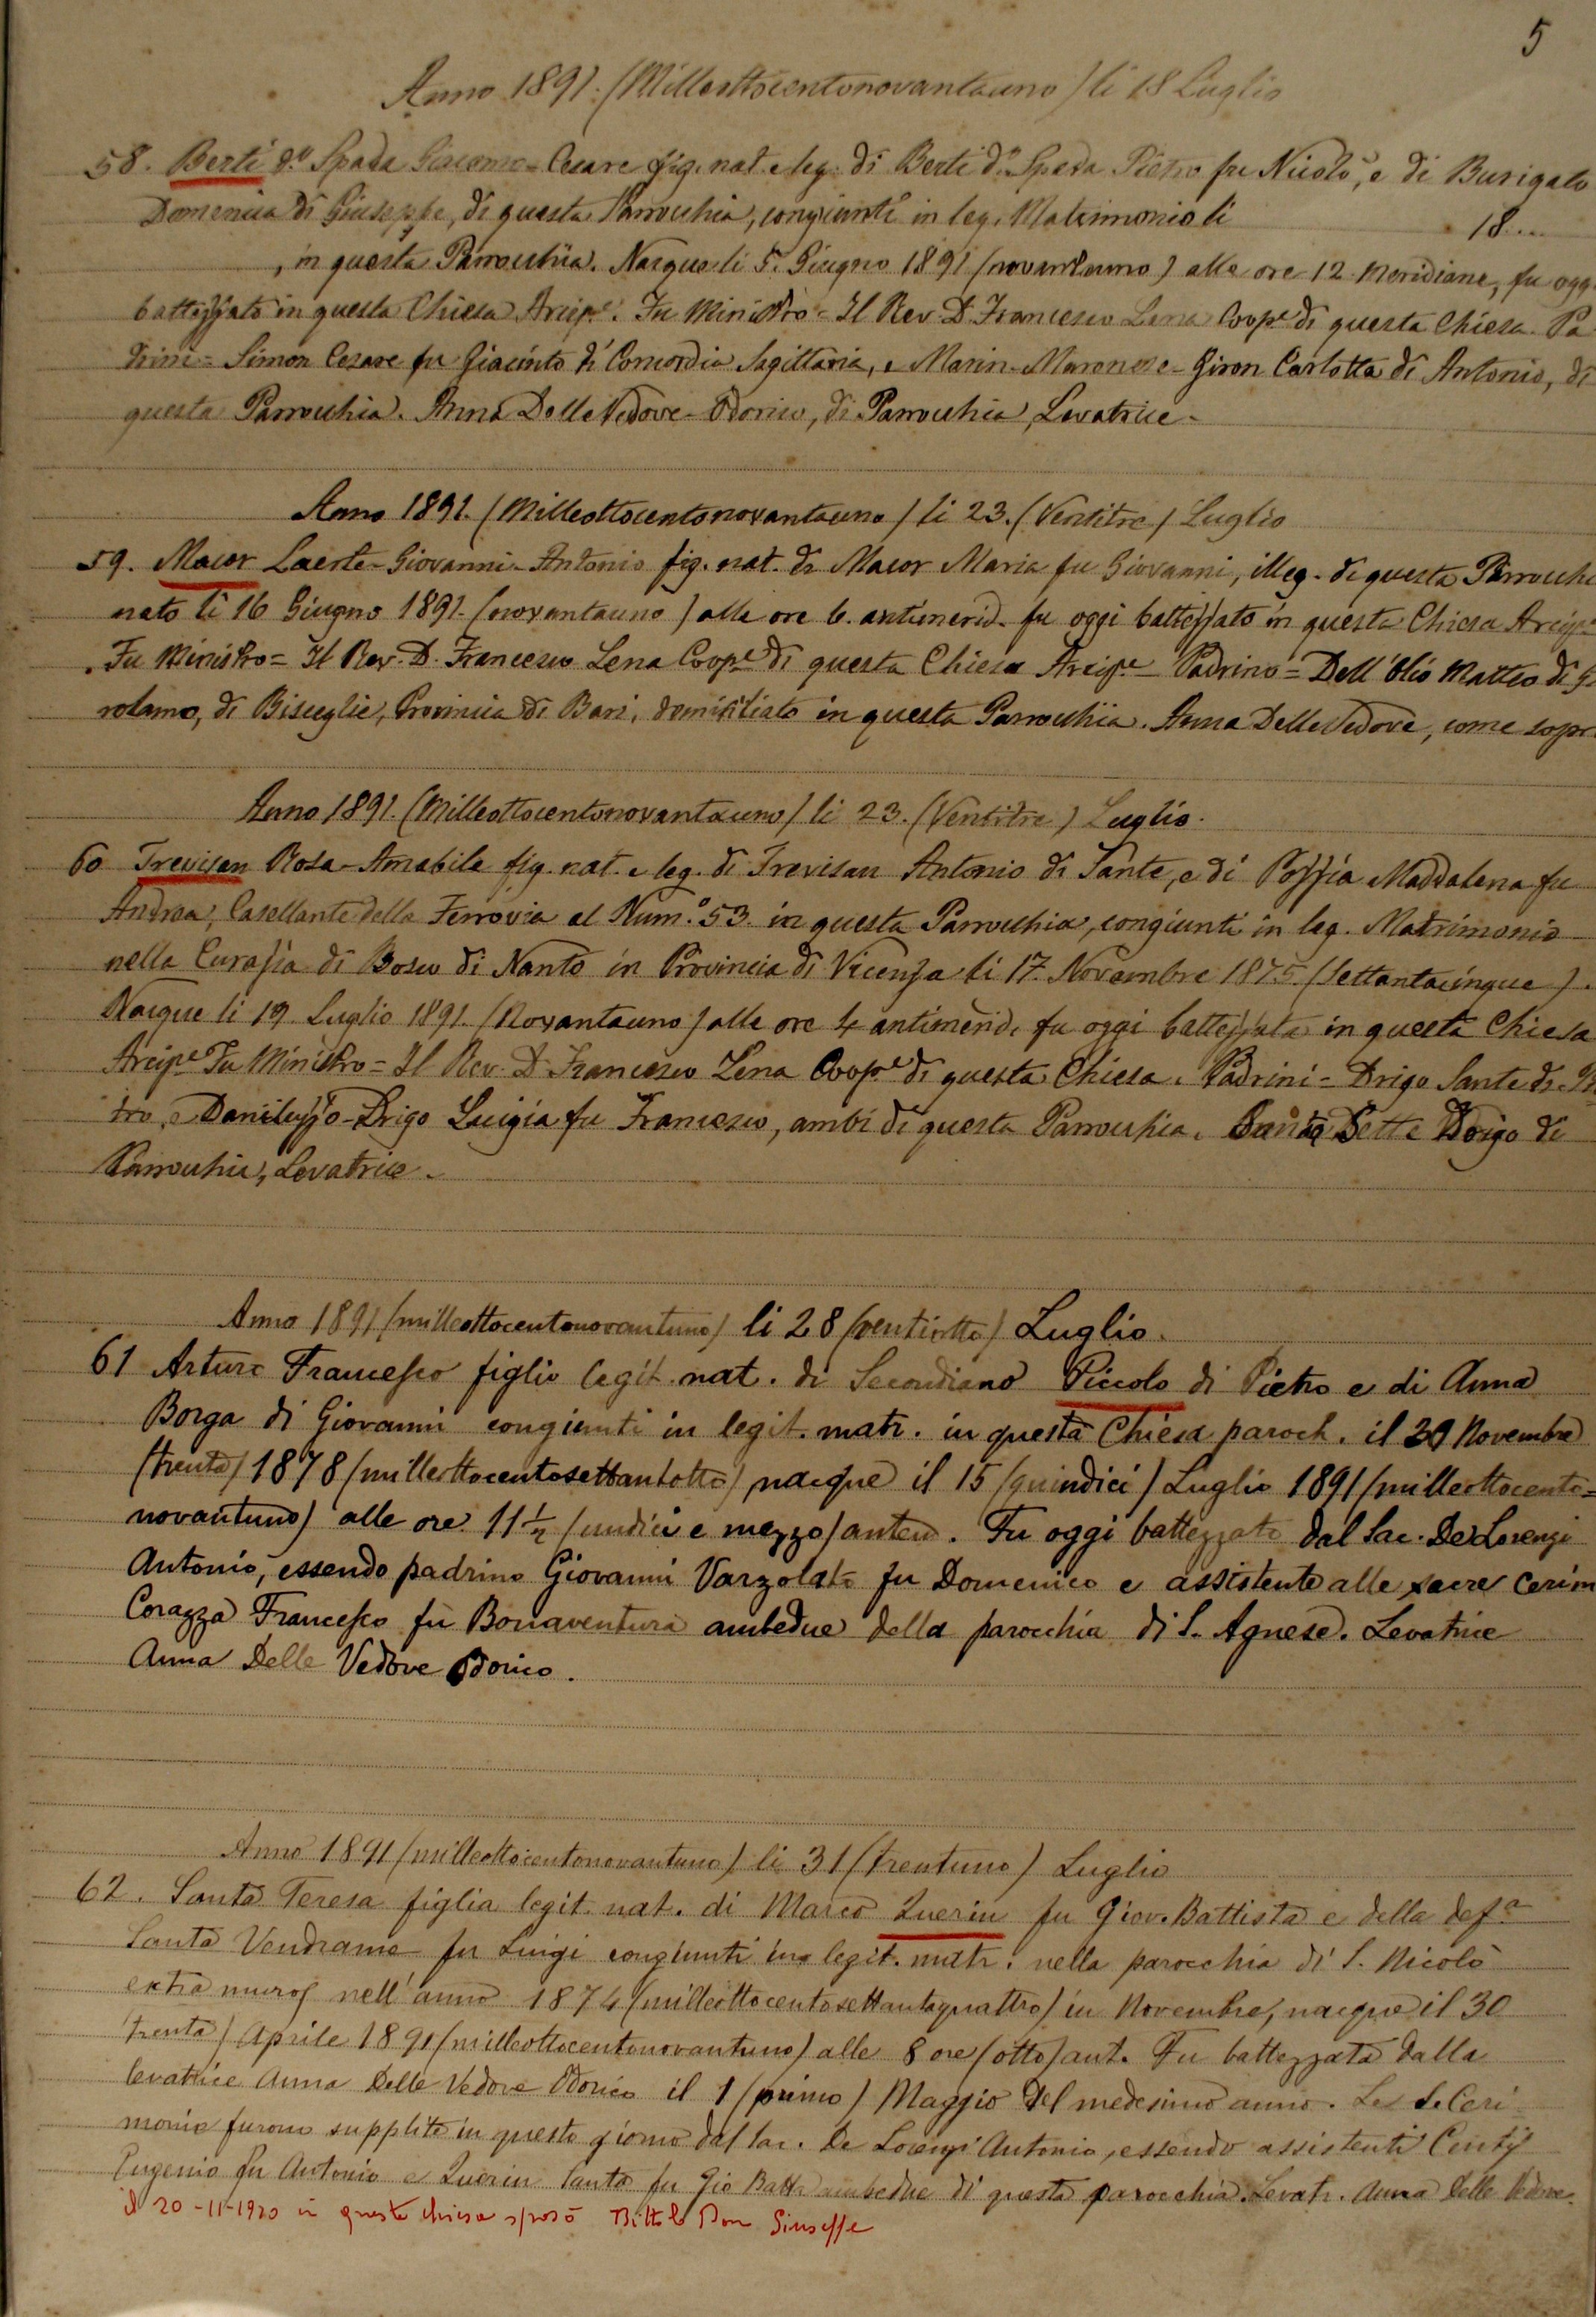 5
Anno 1891. (Milleottocentonovantauno) li 18 Luglio
58. Berti d.o Spada Giacomo-Cesare fig. nat. e leg. di Berti d.o Spada Pietro fu Nicolò, e di Burigato
Domenica di Giuseppe, di questa Parrocchia, congiunti in leg. Matrimonio li 18...
, in questa Parrocchia. Nacque li 5. Giugno 1891 (novantauno) alle ore 12 meridiane, fu oggi
battezzato in questa Chiesa Arcip.e. Fu Ministro = Il Rev. D. Francesco Lena Coop.e di questa Chiesa. Pa
drini = Simon Cesare fu Giacinto di Concordia Sagittaria, e Marin-Maronese-Giron Carlotta di Antonio, di
questa Parrocchia. Anna Delle Vedove-Odorico, di Parrocchia, Levatrice.
Anno 1891. (Milleottocentonovantauno) li 23. (Ventitre) Luglio
59. Macor Laerte-Giovanni-Antonio fig. nat. di Macor Maria fu Giovanni, illeg. di questa Parrocchi
nato li 16 Giugno 1891. (novantauno) alle ore 6. antimerid. fu oggi battezzato in questa Chiesa Arcip.e
. Fu Ministro = Il Rev. D. Francesco Lena Coop.e di questa Chiesa Arcip.e Padrino = Dell'Olio Matteo di Gi
rolamo, di Bisceglie, Provincia di Bari, domiciliato in questa Parrocchia. Anna Delle Vedove, come sopra
Anno 1891. (Milleottocentonovantauno) li 23. (Ventitre) Luglio.
60 Trevisan Rosa-Amabile fig. nat. e leg. di Trevisan Antonio di Sante, e di Pozzia Maddalena fu
Andrea, Casellante della Ferrovia al Num.o 53. in questa Parrocchia, congiunti in leg. Matrimonio
nella Curazia di Bosco di Nanto in Provincia di Vicenza li 17. Novembre 1875. (Settantacinque).
Nacque li 19 Luglio 1891. (Novantauno) alle ore 4 antimerid. fu oggi battezzata in questa Chiesa
Arcip.e Fu Ministro = Il Rev. D. Francesco Lena Coop.e di questa Chiesa. Padrini = Drigo Sante di Pie
tro, e Daniluzzo-Drigo Luigia fu Francesco, ambi di questa Parrocchia. Sette Drigo di
Parrocchia, Levatrice.
Anno 1891 (milleottocentonovantuno) li 28 (ventiotto) Luglio.
61 Arturo Francesco figlio legit. nat. di Secondiano Piccolo di Pietro e di Anna
Borga di Giovanni congiunti in legit. matr. in questa Chiesa paroch. il 30 Novembre
(trenta) 1878 (milleottocentosettantotto) nacque il 15 (quindici) Luglio 1891 (milleottocento=
novantuno) alle ore 11 1/2 (undici e mezzo) antem. Fu oggi battezzato dal Sac. De Lorenzi
Antonio, essendo padrino Giovanni Varzolato fu Domenico e assistente alle sacre Cerim
Corazza Francesco fu Bonaventura ambedue della parocchia di S. Agnese. Levatrice
Anna Delle Vedove Odorico.
Anno 1891 (milleottocentonovantuno) li 31 (trentuno) Luglio
62. Santa Teresa figlia legit. nat. di Marco Querin fu Giov. Battista e della def.a
Santa Vendrame fu Luigi congiunti in legit. matr. nella parocchia di S. Nicolò
extra muros nell'anno 1874 (milleottocentosettantaquattro) in Novembre, nacque il 30
(trenta) Aprile 1891 (milleottocentonovantuno) alle 8 ore (otto) ant. Fu battezzata dalla
levatrice Anna Delle Vedove Odorico il 1 (primo) Maggio del medesimo anno. Le S. Ceri
monie furono supplite in questo giorno dal Sac. De Lorenzi Antonio, essendo assistenti
Eugenio fu Antonio e Querin Santo fu Gio Batta ambedue di questa parocchia. Levatr. Anna Delle Vedove.
il 20-11-1920 in questa chiesa sposò Giuseppe